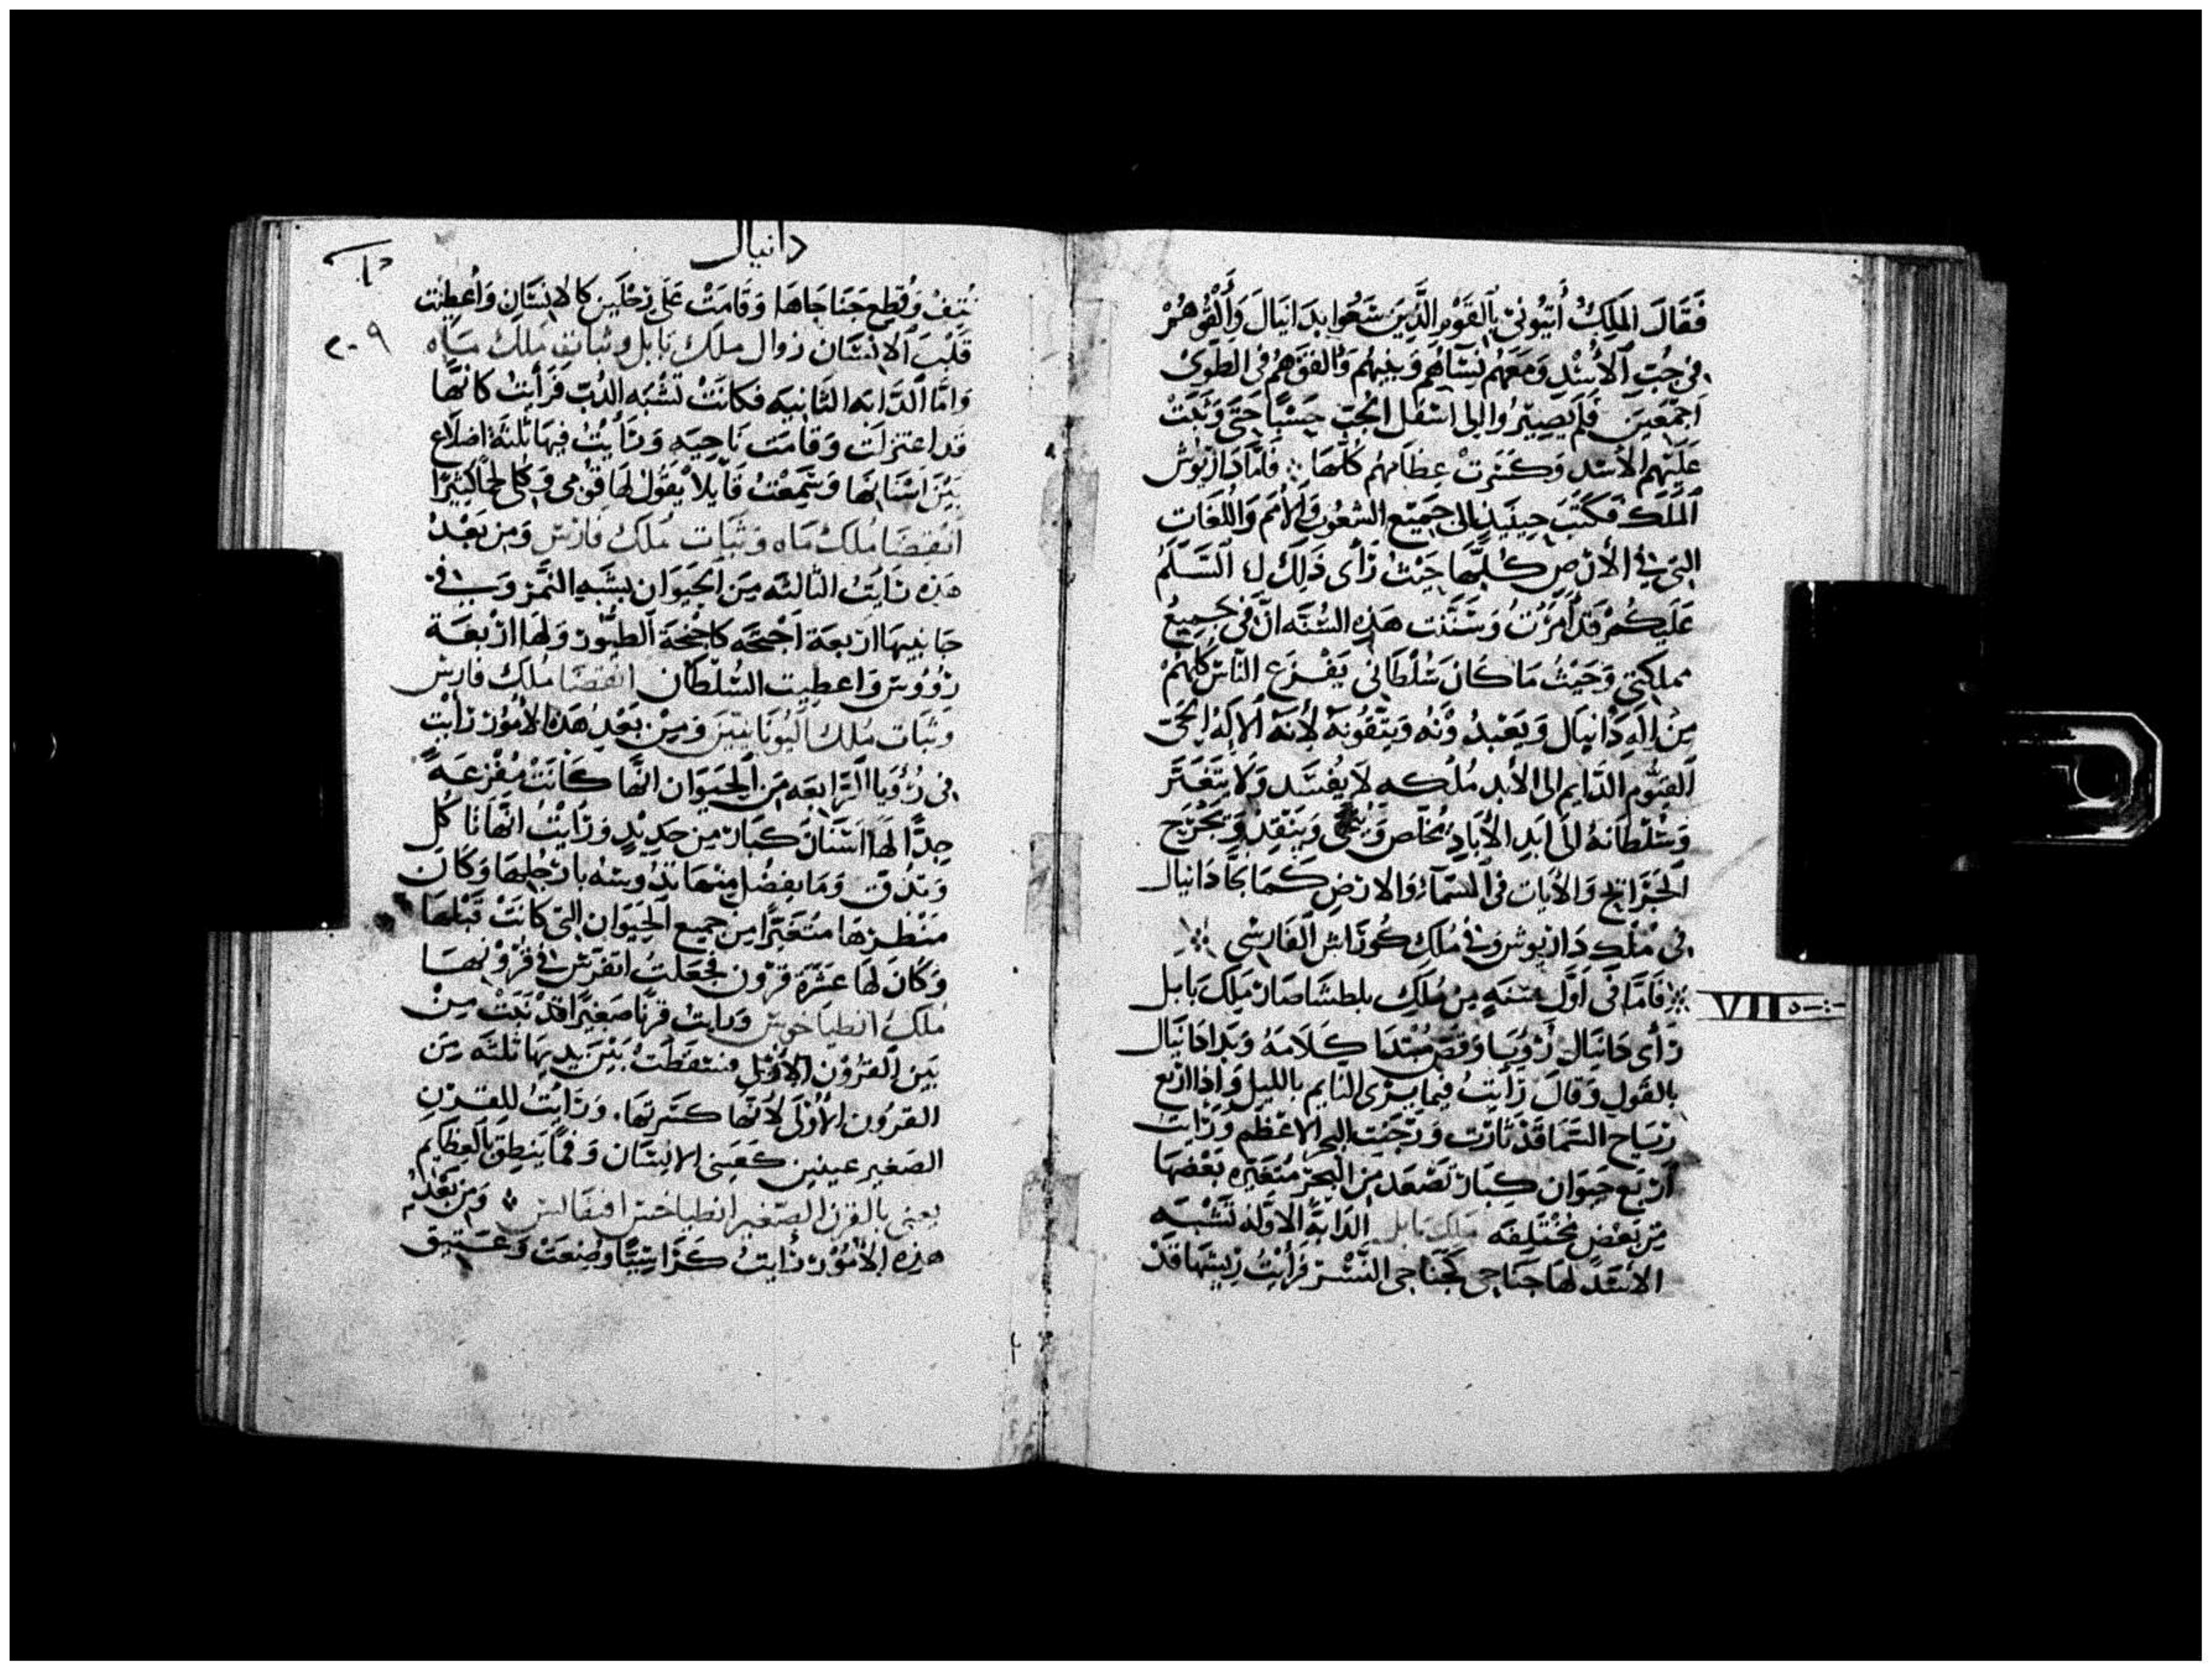 فَقَالَ المَلِكُ أَتْبُونى بِالقَوْمِ الَّذِينَ سَعُوا بِدَانيَالَ وَأَلْقُوهُمْ
فى جُبِ الأُسْدِ وَمَعَهُم نِسَآهُم وَبنيهُم فَالقَوهُم فى الطَوىْ
اَجمَعينَ فَلَم يَصِيْرُوا الى اسْفَل الجُبّ حَتَّى وَثَبَتْ
عَلَيهم الأُسْد وَكَسَرتْ عِظَامهُم كُلَّهَا ؞ فَامَّا دَاريُوش
المَلكَ فَكَتَبَ حِينَيذٍ الى جَمِيْع الشعُوب وَالأُمَم وَاللُغَاتِ
التى فى الأرْض كُلّهَا السَّلَمُ
عَلَيكُمْ قَد أَمَرْتُ وَسَنَنْت هَذِه السُنَّه انّ فى جَمِيعْ
مملكتى وَحَيْثُ مَا كَانَ سُلْطَانى يَفْزع النَاسْ كُلهُمْ
مِنْ اِلَهِ دَانيَال وَيَعْبدُ وْنهُ وَيَتَّقُونهُ لأنهُ الالَهُ الحَىّ
القَيُّوم الدَّايم الى الأبد مُلكه لاَ يُفسَد وَلاَ يتَغَيَّر
وَسُلْطَانهُ الى ابَدِ الأبَادِ يُخَلّص وَيُنَجّى وَيَنْقِذ وَيَجْترح
الجَرَايح وَالأيَات فى السّمَآءِ وَالارْض كَمَا نجَّا دَانيال
فى مُلْك دَاريوش وَفى مُلكِ كُورَاش الفَارسى ؞
فَامَّا فى اَوَّل سَنَهٍ مِن مُلكِ بلطشَاصَار مَلِك بَابل
رَأى دَانيَال رُؤيَا وَقصّ مُبْتدِيا كَلاَمَهُ وَبَدا دَانيَال
بالقَول وَقالَ رَأيتُ فيما يرَى النَايم بالليل وَاِذا ارْبع
ريَاح السّمَا قَدْ ثارَت وَرَجَّت البحر الاعْظَم وَرَأيت
اَرْبَع حيَوان كبَار تَصْعَد مِن البَحر مُتغَيّره بَعْضهَا
مِن بَعْض مُخْتلفه مَلِك بَابل الدَابّةُ الاوَّلهُ تَشْبَه
الأسَد لهَا جنَاحى كَجَنَاحى النّسْر فَرَأيْتُ ريشهَا قدْ
VII
دانيال
نُتِفْ وَقُطِع جَنَاجَاهَا وَقَامَتْ عَلى رجْلَين كالانسَان وَأُعْطيَت
قَلْبَ الانْسَان زوال ملك بَابل وثبات مُلك مَاه
وَامَّا الدَّابَه الثَانيه فكَانَتْ تشْبَه الدُبّ فَرَأيتُ كَانهَّا
قَد اعتزلَت وَقامَت نَاحيَهٍ وَرَأيتُ فيهَا ثَلثَة اضلاَع
بَيْنَ اسْنَانهَا وَسَمعْتُ قَايلاً يقُولْ لهَا قُومى وَكلى لحمًا كَثيرًا
انْقِضَا مُلك مَاه وَثبَات مُلك فَارس وَمِن بَعْدْ
هَذِه رَايتُ الثالثه مِنَ الحَيَوان بشَبَهِ النَمْر وَ فى
جَانبيهَا ارْبعَة اَجْنِحَه كَاجْنحَة الطيُور وَلهَا ارْبعَة
رؤوس وَاعطيت السُلطان انْقضَا مُلك فارس
وَثبَات مُلك اليُونَانيّين وَمِنْ بَعْدِ هَذِه الأُمُور رَأيت
فى رُؤيَا الرَّابعَه مِن الحَيَوان انهَّا كَانَتْ مُفْزعَةً
جِدًّا لهَا اسْنَان كبَار من حَدِيْدٍ وَرَايْتُ انهَّا تَاكُل
وَتدُق وَمَا يَفضُل مِنْهَا تدُوسهُ بارْجُلهَا وَكَانَ
مَنْظرهَا مُتغَيّرًا مِن جمِيع الحَيَوان التى كَانَتْ قَبْلهَا
وَكَانَ لهَا عَشَرَة قرُون فجَعَلتُ اتفَرّس فى قرُونهَا
مُلك انطيَاخوس وَرايت قَرنًا صَغيرًا قَدْ نَبَتْ مِنْ
بَيْن القرُون الأوَّل فسَقَطَتْ بَيْنَ يَديهَا ثَلثَه مِنَ
القرُون الأُولَى لأنَّهَا كسَرتهَا. وَرَايْتُ للقَرْن
الصَغير عينين كعَينى الانسَان وَفمًا يَنطِق بالعظَايم
يعنى بالقرن الصّغير انطياخس افيفَانس ؞ وَمِن بَعْدْ
هَذِه الأمُوْر رَايتُ كَرَاسيًّا وضِعَتْ وَعَتيق